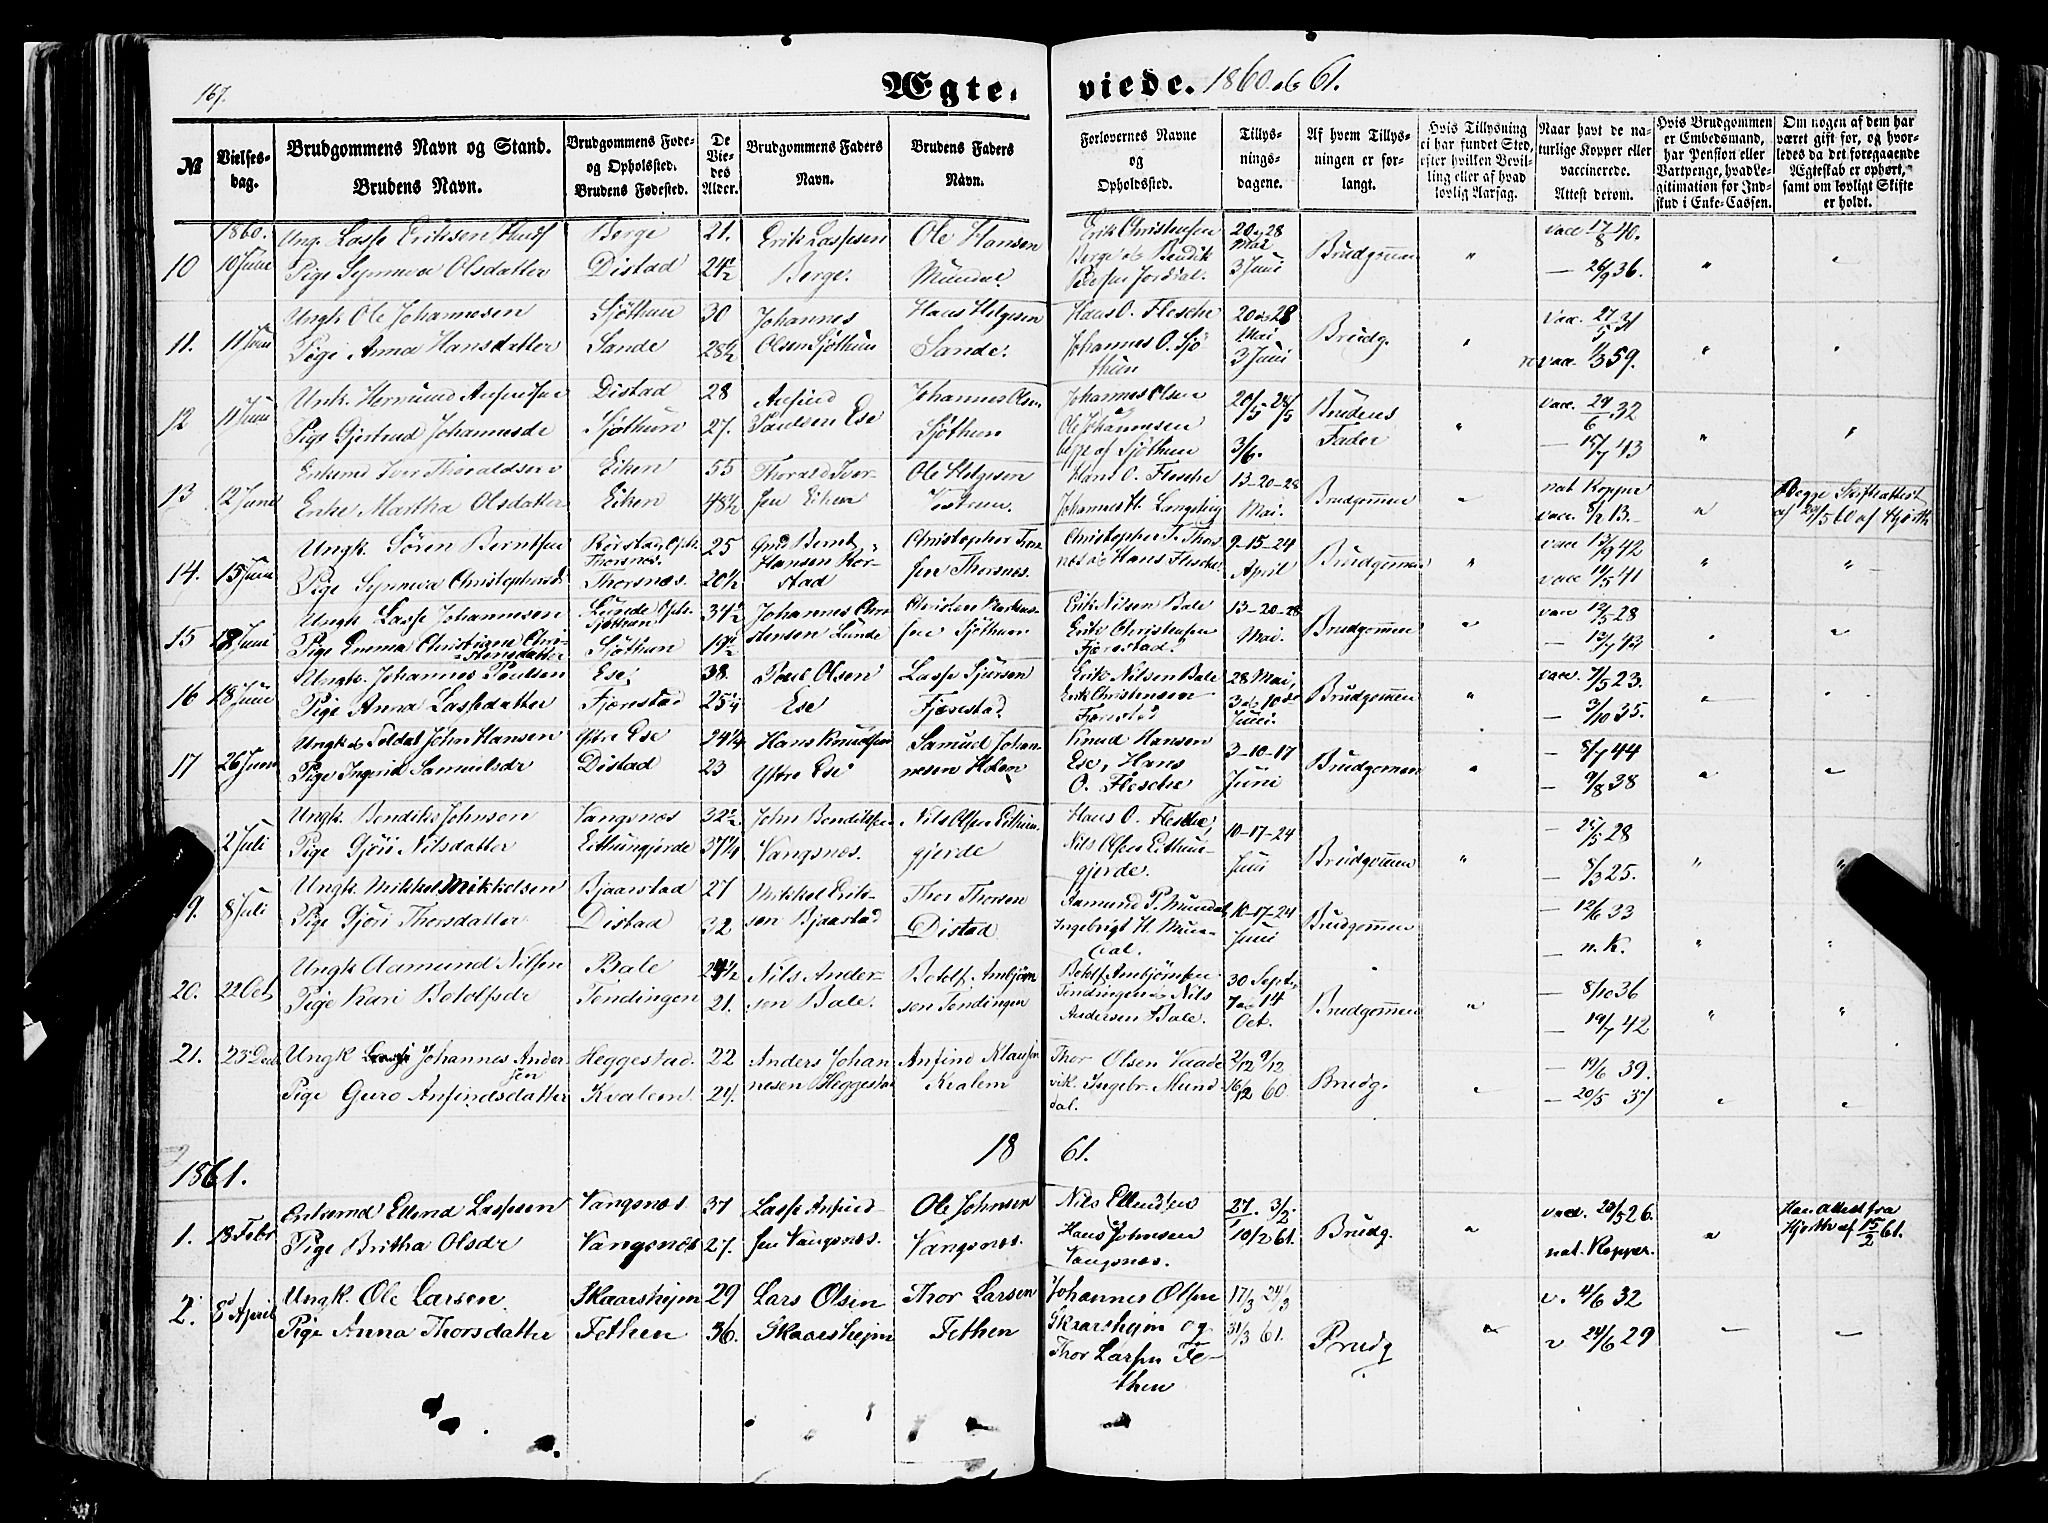 167.
Ægte-viede. 1860 og 61.
№
Vielses-dag.
Brudgommens Navn og Stand.
Brudens Navn.
Brudgommens Føde- og Opholdssted.
Brudens Fødested.
De Viedes Alder.
Brudgommens Faders Navn.
Brudens Faders Navn.
Forlovernes Navne og Opholdssted.
Tillysningsdagene.
Af hvem Tillysningen er forlangt.
Hvis Tillysning ei har fundet Sted, efter hvilken Bevilling eller af hvad lovlig Aarsag.
Naar havt de naturlige Kopper eller vaccinerede. Attest derom.
Hvis Brudgommen er Embedsmand, har Pension eller Vartpenge, hvad Legitimation for Indskud i Enke-Cassen.
Om nogen af dem har været gift før, og hvorledes da det foregaaende Ægteskab er ophørt, samt om lovligt Skifte er holdt.
1860.
10 10 Juni Ung. Lasse Eriksen Berge 21. Erik Lassesen Berge. Ole Hansen Mundal Erik Christensen Berge og Bendik Jordal. 20 og 28 Mai 3 Juni Brudgommen " vacc 17/8 40. " "
Pige Synneva Olsdatter Distad 24½ — 26/9 36.
11. 11 Juni Ungk Ole Johannesen Sjøthun 30 Johannes Olsen Sjøthun Hans Helgesen Sande. Hans O. Flesche Johannes O. Sjøthun 20 og 28 Mai 3 Juni Brudg. " Vacc. 27/5 31 " "
Pige Anna Hansdatter Sande 28½ revacc. 1/3 59.
12 11 Juni Unk. Hermund Anfindsen Distad 28 Anfind Paulsen Ese Johannes Olsen Sjøthun Johannes Olsen Ole Johannesen begge af Sjøthun 20/5 - 28/5 3/6. Brudens Fader " vacc. 29/6 32 " "
Pige Gjertrud Johannesdr Sjøthun 27. — 15/7 43
13 12 Juni Enkemd Iver Thoraldsen Eiken 55 Thorald Iversen Eiken Ole Helgesen Hans O. Flesche Johannes H. 13-20-28 Mai. Brudgommen " nat Kopper " Begge Skifteattest af 5 60 af Hjorth
Enke Martha Olsdatter Eiken 48½ vacc. 8/2 13.
14. 15 Juni Ungk. Sören Berntsen Rørstad, Oph. Thorsnæs. 25 Bernt Hansen Rørstad Christopher Thorsnæs. Christopher T. Thorsnæs og Hans Flesche. 9-15-24 April Brudgommen " vacc 13/9 42 " "
Pige Synneva Christophersd. Thorsnæs. 20½ vacc 14/5 41
15 18 Juni Ungk Lasse Johannesen Lunde Oph. Sjøthun 34½ Johannes Christensen Lunde Christen Sjøthun Erik Nilsen Bale Erik Christensen Fjærestad. 13-20-28 Mai. Brudgommen " vacc 12/5 28 " "
Pige Emma Christiane Christensdatter Sjøthun 19½ — 13/7 43
16 18 Juni Ungk. Johannes Paulsen Ese, 38. Paul Olsen Ese Lasse Sjursen Fjærestad. Erik Nilsen Bale Erik Christensen Fjærestad 28 Mai, 3 og 10de Juni. Brudgommen " vacc. 7/5 23. " "
Pige Anna Lassedatter Fjærestad 25¼ — 3/10 35.
17 26 Juni Ungk og Soldat John Hansen Ytre Ese 24¼ Hans Knudsen Ytre Ese Samuel Johannesen Holen Knud Hansen Ese, Hans O. Flesche 3-10-17 Juni Brudgommen " — 8/7 44 " "
Pige Ingerid Samuelsdr Distad 23 — 9/8 38
2 Juli Ungk. Bendik Johnsen Vangsnæs 32½ John Bendiksen Vangsnæs. Nils Olsen Eithungjerde Hans O. Flesche, Nils Olsen Eithungjerde. 10-17-24 Juni Brudgommen " — 25/5 28 " "
Pige Gjøri Nilsdatter Eithungjerde 37¼ — 8/3 25.
19. 8 Juli Ungk. Mikkel Mikkelsen Bjaarstad 27 Mikkel Eriksen Bjaastad Thor Thorsen Distad Samund P. Mundal, Ingebrigt H. Mundal. 10-17-24 Juni Brudgommen — 12/6 33 " "
Pige Gjøri Thorsdatter Distad 32 — n. K.
20. 22 Oct Ungk Aamund Nilsen Bale 24½ Nils Andersen Bale. Botolf Ambjørnsen Tendingen Botolf Ambjørnsen Tendingen og Nils Andersen Bale. 30 Septr, 7 og 14 Oct. Brudgommen " — 8/10 36 " "
Pige Kari Botolfsdr Tendingen 21. — 19/7 42
21. 23 Dec Ungk Johannes Andersen Heggestad. 22 Anders Johannesen Heggestad Anfind Klausen Kvalem Thor Olsen Vaadevik. Ingebr. Mundal. 2/12 9/12 16/12 60. Brudg. " — 19/6 39. " "
Pige Guro Anfindsdatter Kvalem. 24. — 20/5 37
1861. 18 61.
1. 18 Febr Enkemd Ellend Lassesen Vangsnæs. 37 Lasse Anfindsen Vangsnæs. Ole Johnsen Vangsnæs. Nils Ellendsen Hans Johnsen Vangsnæs. 27/1. 3/2. 10/2 61. Brudg. " vacc. 20/5 26. " Han attest fra Hjorth af 15/2 61.
Pige Britha Olsdr Vangsnæs 27. nat. Kopper.
2. 8d April Ungk. Ole Larsen Skaarshejm 29 Lars Olsen Skaarshejm Thor Larsen Fethen Johannes Olsen Skaarshejm og Thor Larsen Fethen 17/3 24/3 31/3 61. Brudg " v. 4/6 32 — —
Pige Anna Thorsdatter Fethen 36. v 24/6 29